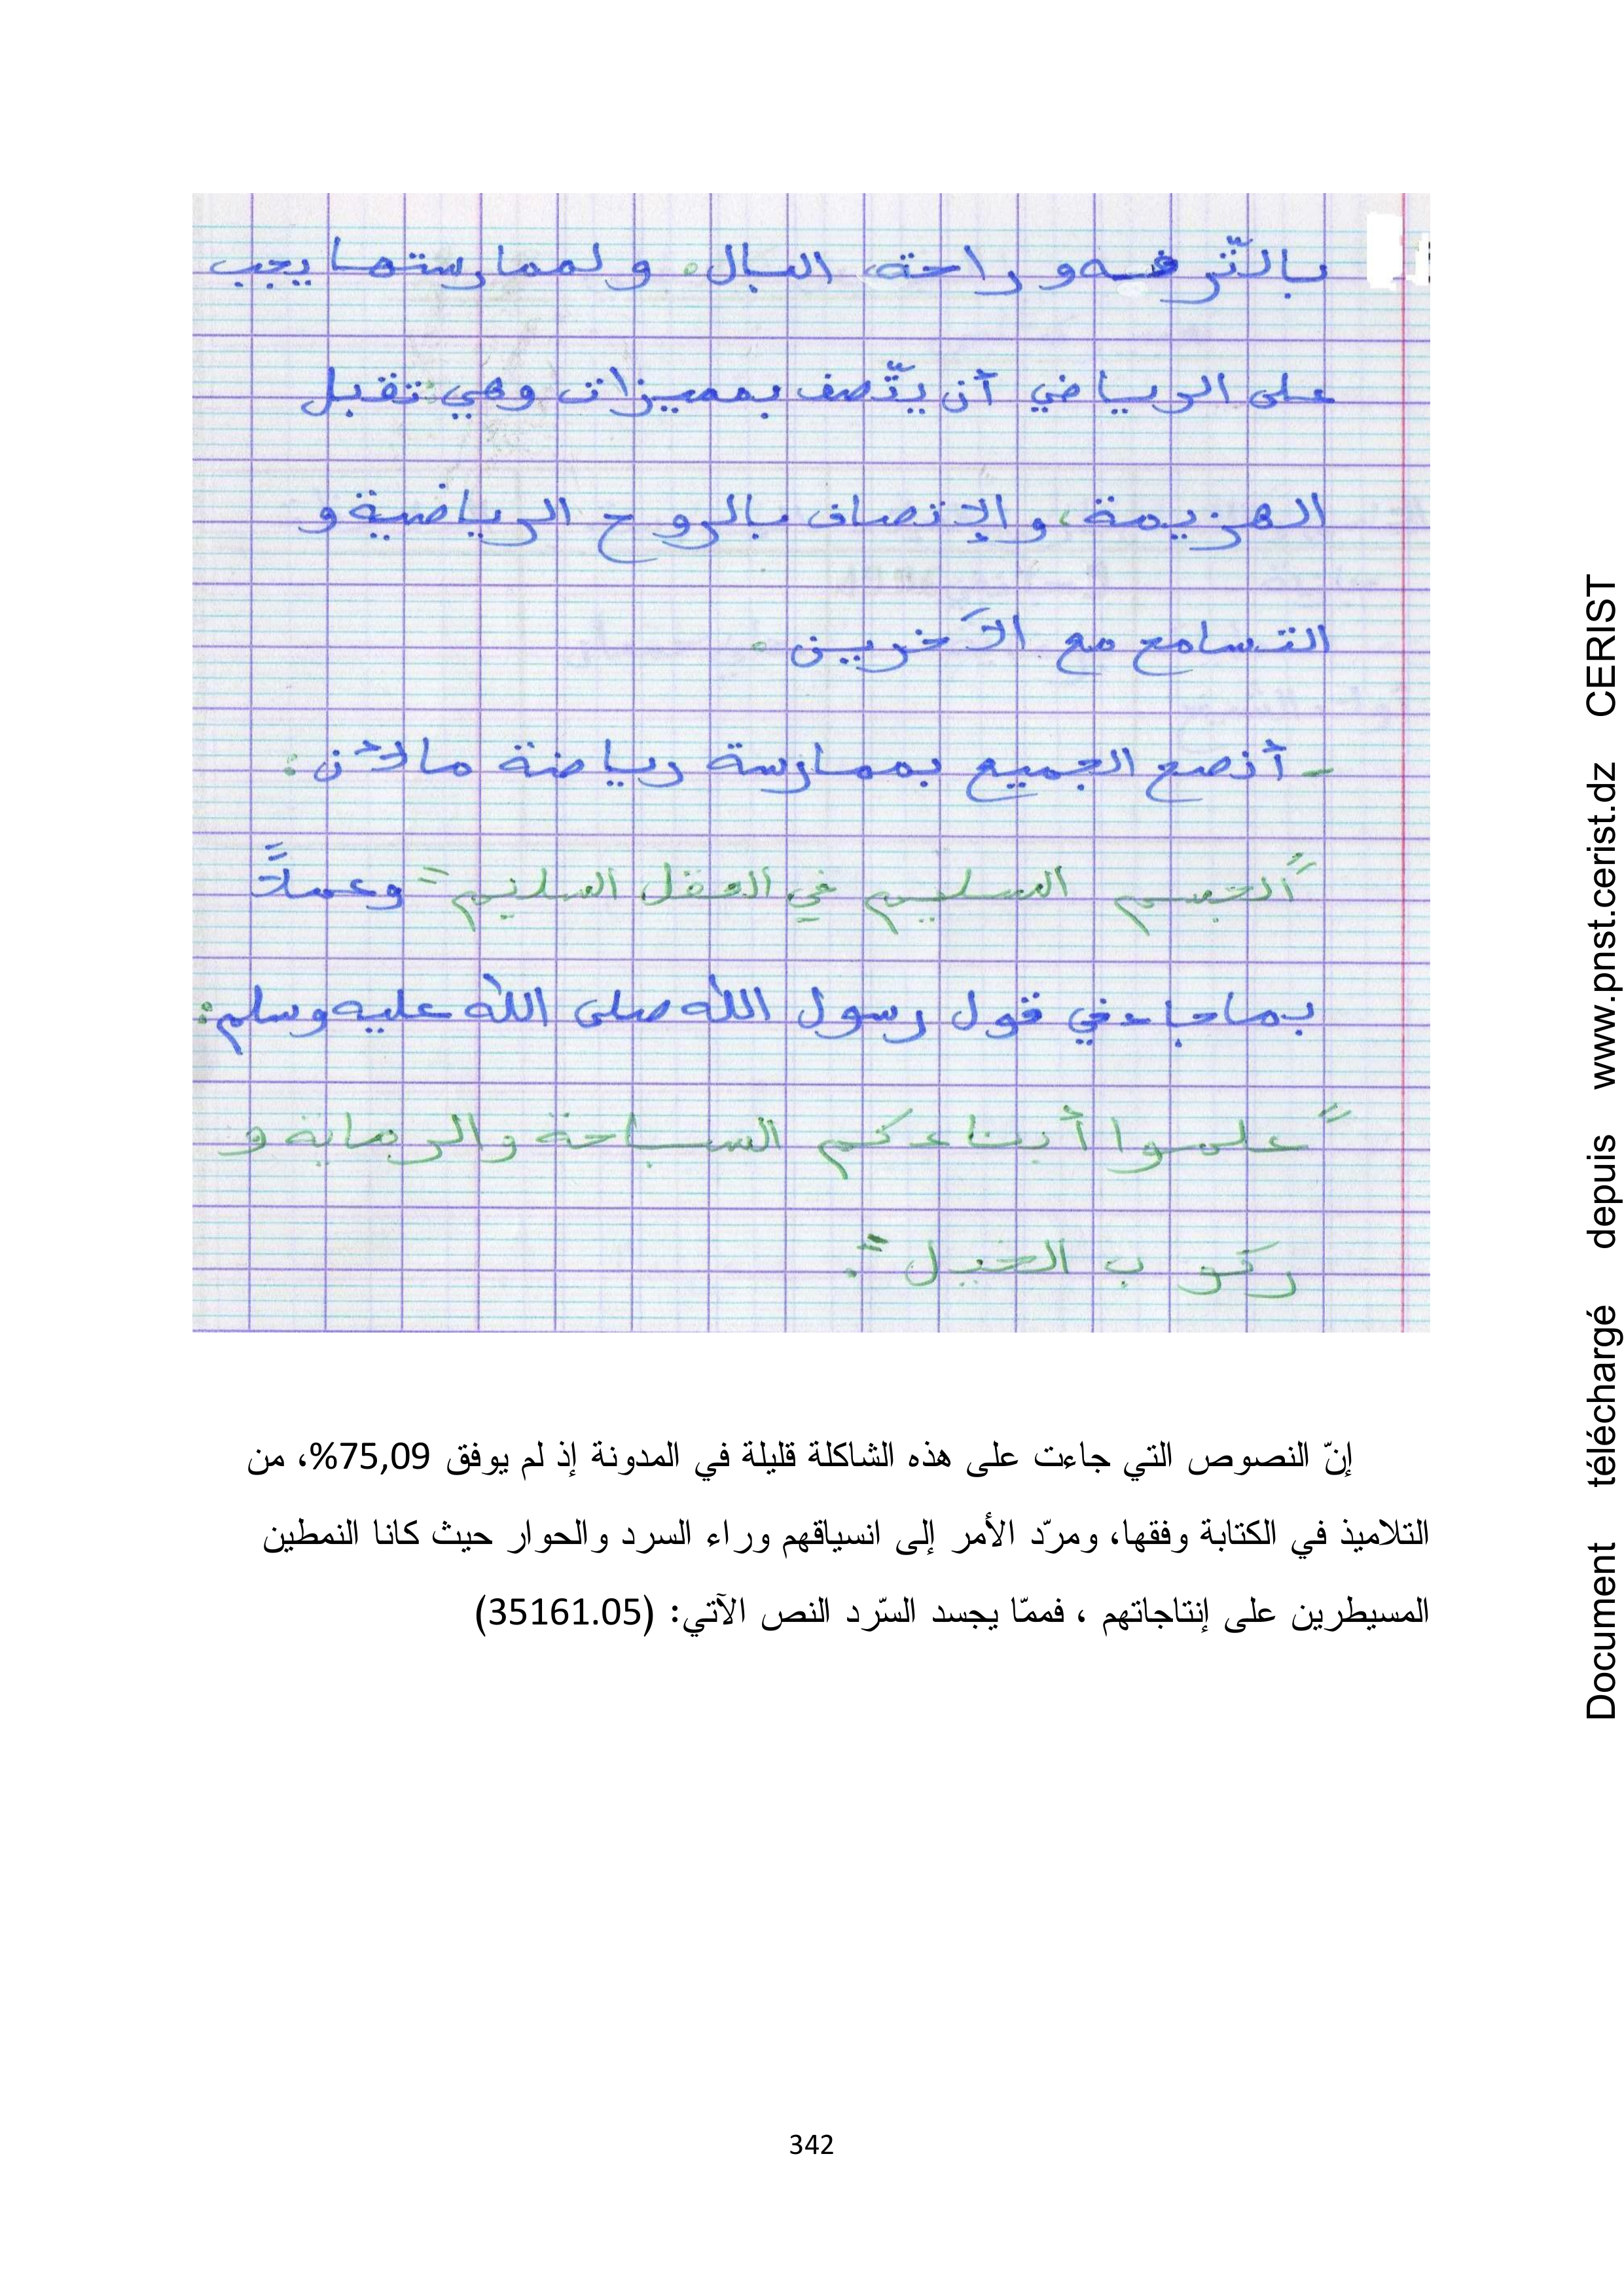 بالتّرفيه و راحة البال. و لممارستها يجب
على الرياضي أن يتّصف بمميزات وهي: تقبل
الهزيمة، و الإتصاف بالروح الرياضية و
التسامح مع الآخرين.
- أنصح الجميع بممارسة رياضة ما لأن:
"الجسم السليم في العقل السليم" وعملاً
بما جاء في قول رسول الله صلى الله عليه وسلم:
"علموا أبناءكم السباحة والرماية و
ركوب الخيل".
إنّ النصوص التي جاءت على هذه الشاكلة قليلة في المدونة إذ لم يوفق 75,09%، من
التلاميذ في الكتابة وفقها، ومرّد الأمر إلى انسياقهم وراء السرد والحوار حيث كانا النمطين
المسيطرين على إنتاجاتهم ، فممّا يجسد السّرد النص الآتي: (35161.05)
342
Document téléchargé depuis www.pnst.cerist.dz CERIST